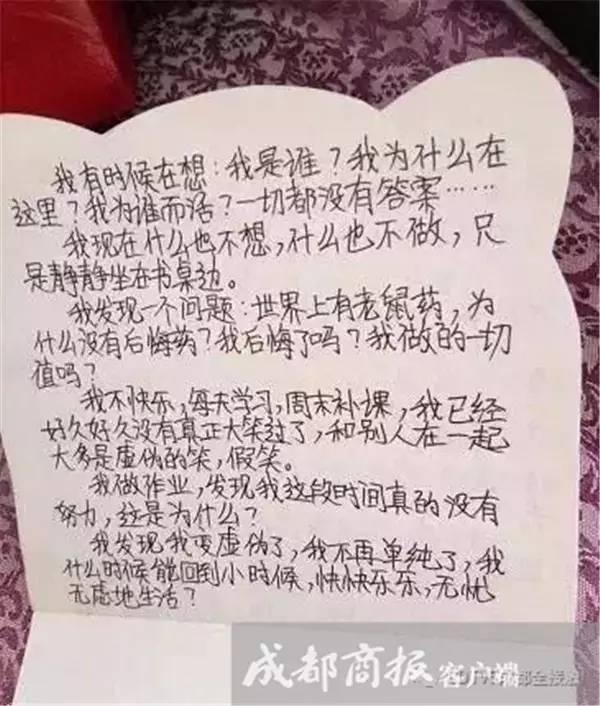 我有时候在想：我是谁？我为什么在
这里？我为谁而活？一切都没有答案……
我现在什么也不想，什么也不做，只
是静静坐在书桌边。
我发现一个问题：世界上有老鼠药，为
什么没有后悔药？我后悔了吗？我做的一切
值吗？
我不快乐，每天学习，周末补课，我已经
好久好久没有真正大笑过了，和别人在一起
大多是虚伪的笑，假笑。
我做作业，发现我这段时间真的没有
努力，这是为什么？
我发现我变虚伪了，我不再单纯了，我
什么时候能回到小时候，快快乐乐，无忧
无虑地生活？
成都商报客户端
全接触